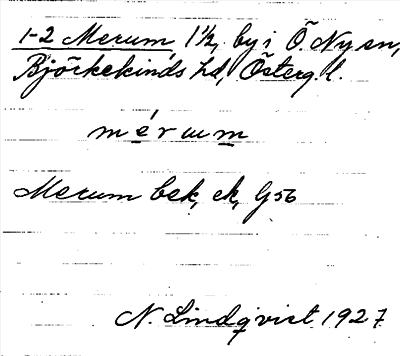 1-2 Merum, 1 1/2, by i Ö. Ny sn,
Björkekinds hd, Österg. l.
mérum
Merum bek, ek, G56
N. Lindqvist 1927